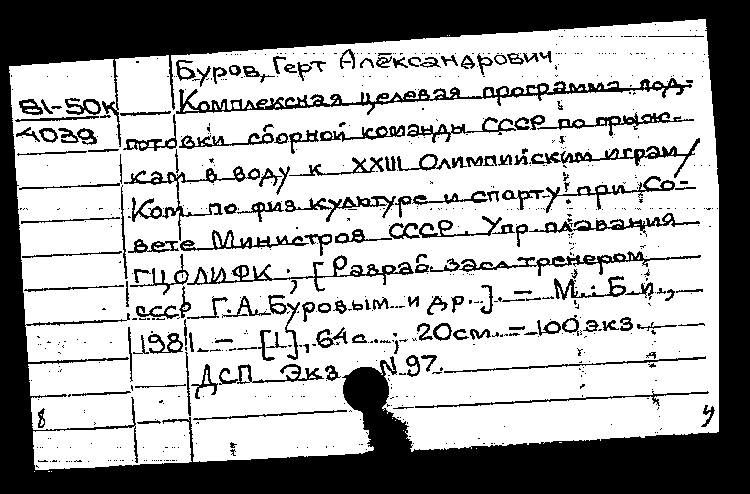 Буров, Герт Александрович
81-50к Комплексная целевая программа под-
4039 готовки сборной команды СССР по прыж-
кам в воду к XXIII Олимпийским играм/
Ком. по физ. культуре и спорту при Со-
вете Министров СССР. Упр. плавания
ГЦОЛИФК ; [Разраб. засл. тренером
СССР Г.А. Буровым и др.]. - М.: Б.и.,
1981. - [1], 64с. ; 20см. - 100экз.
ДСП Экз N 97.
8 У